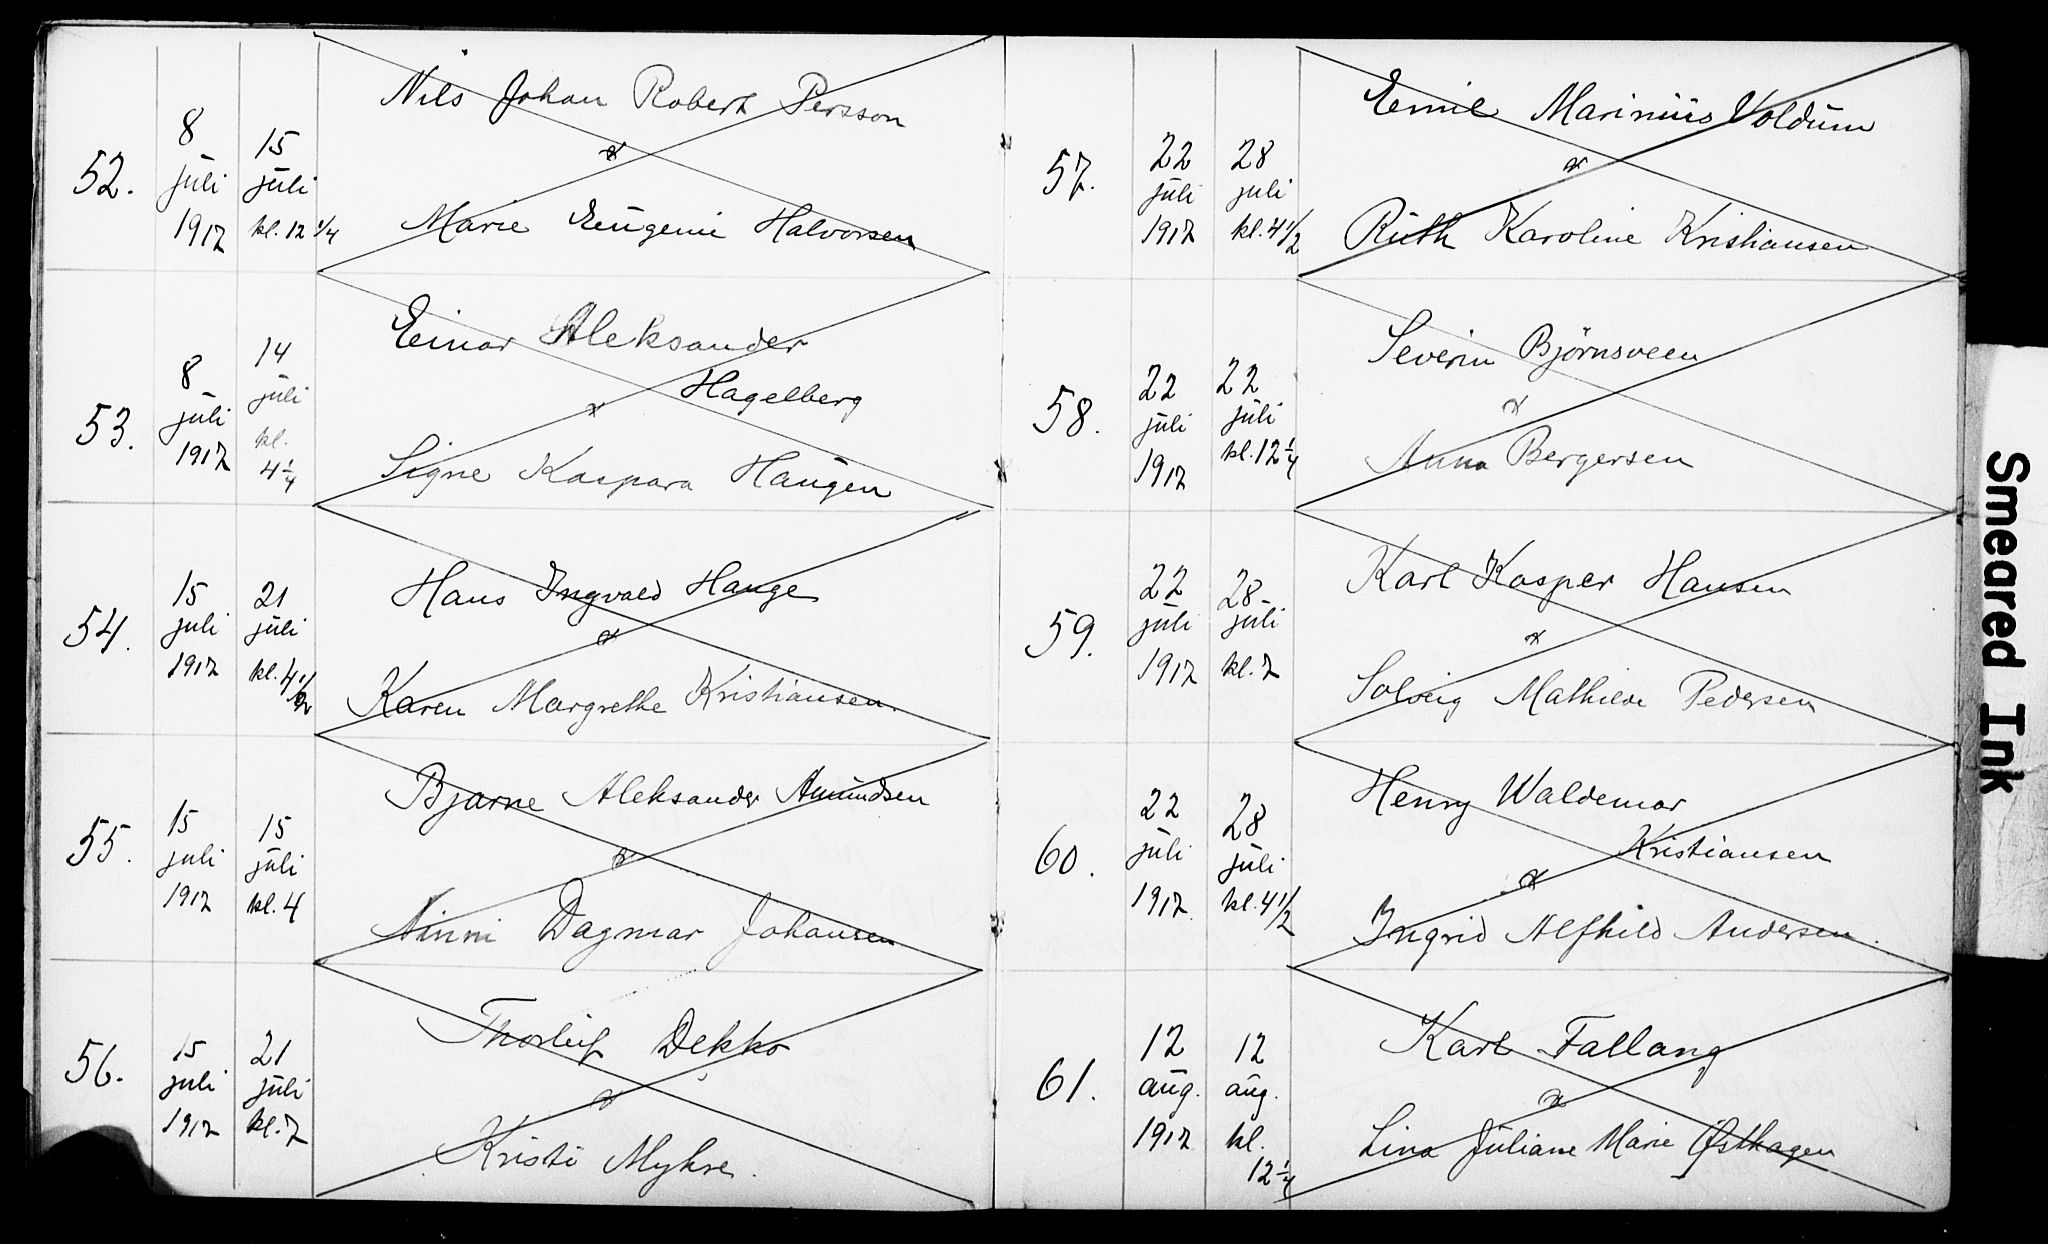 52.
8
juli
1917
15
juli
kl. 12 1/4
Nils Johan Robert Persson
&
Marie Eugenie Halvorsen
53.
8
juli
1917
14
juli
kl.
4 1/4
Einar Aleksander
Hagelberg
&
Signe Kaspara Haugen
54.
15
juli
1917
21
juli
kl. 4 1/2
Hans Ingvald Hauge
&
Karen Margrethe Kristiansen.
55.
15
juli
1917
15
juli
kl. 4
Bjarne Aleksander Amundsen
&
Ninni Dagmar Johansen
56.
15
juli
1917
21
juli
kl. 7
Thorleif Dekko
&
Kristi Myhre.
57.
22
juli
1917
28
juli
kl. 4 1/2
Emil Marinius Voldum
&
Ruth Karoline Kristiansen
58.
22
juli
1917
22
juli
kl. 12 1/4
Severin Bjørnsveen
&
Anna Bergersen
59.
22
juli
1917
28
juli
kl. 7
Karl Kasper Hansen
&
Solveig Mathilde Pedersen
60.
22
juli
1917.
28
juli
kl. 4 1/2
Henry Waldemar
Kristiansen
&
Ingrid Alfhild Andersen.
61.
12
aug.
1917
12
aug.
kl.
12 1/4
Karl Fallang
&
Lina Juliane Marie Østhagen
Smeared Ink